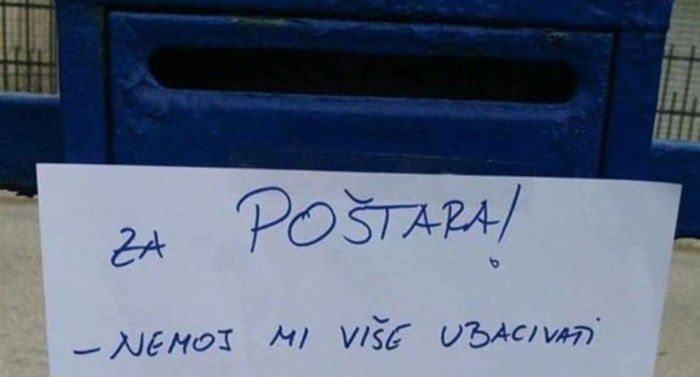 ZA POŠTARA!
- NEMOJ MI VIŠE UBACIVATI